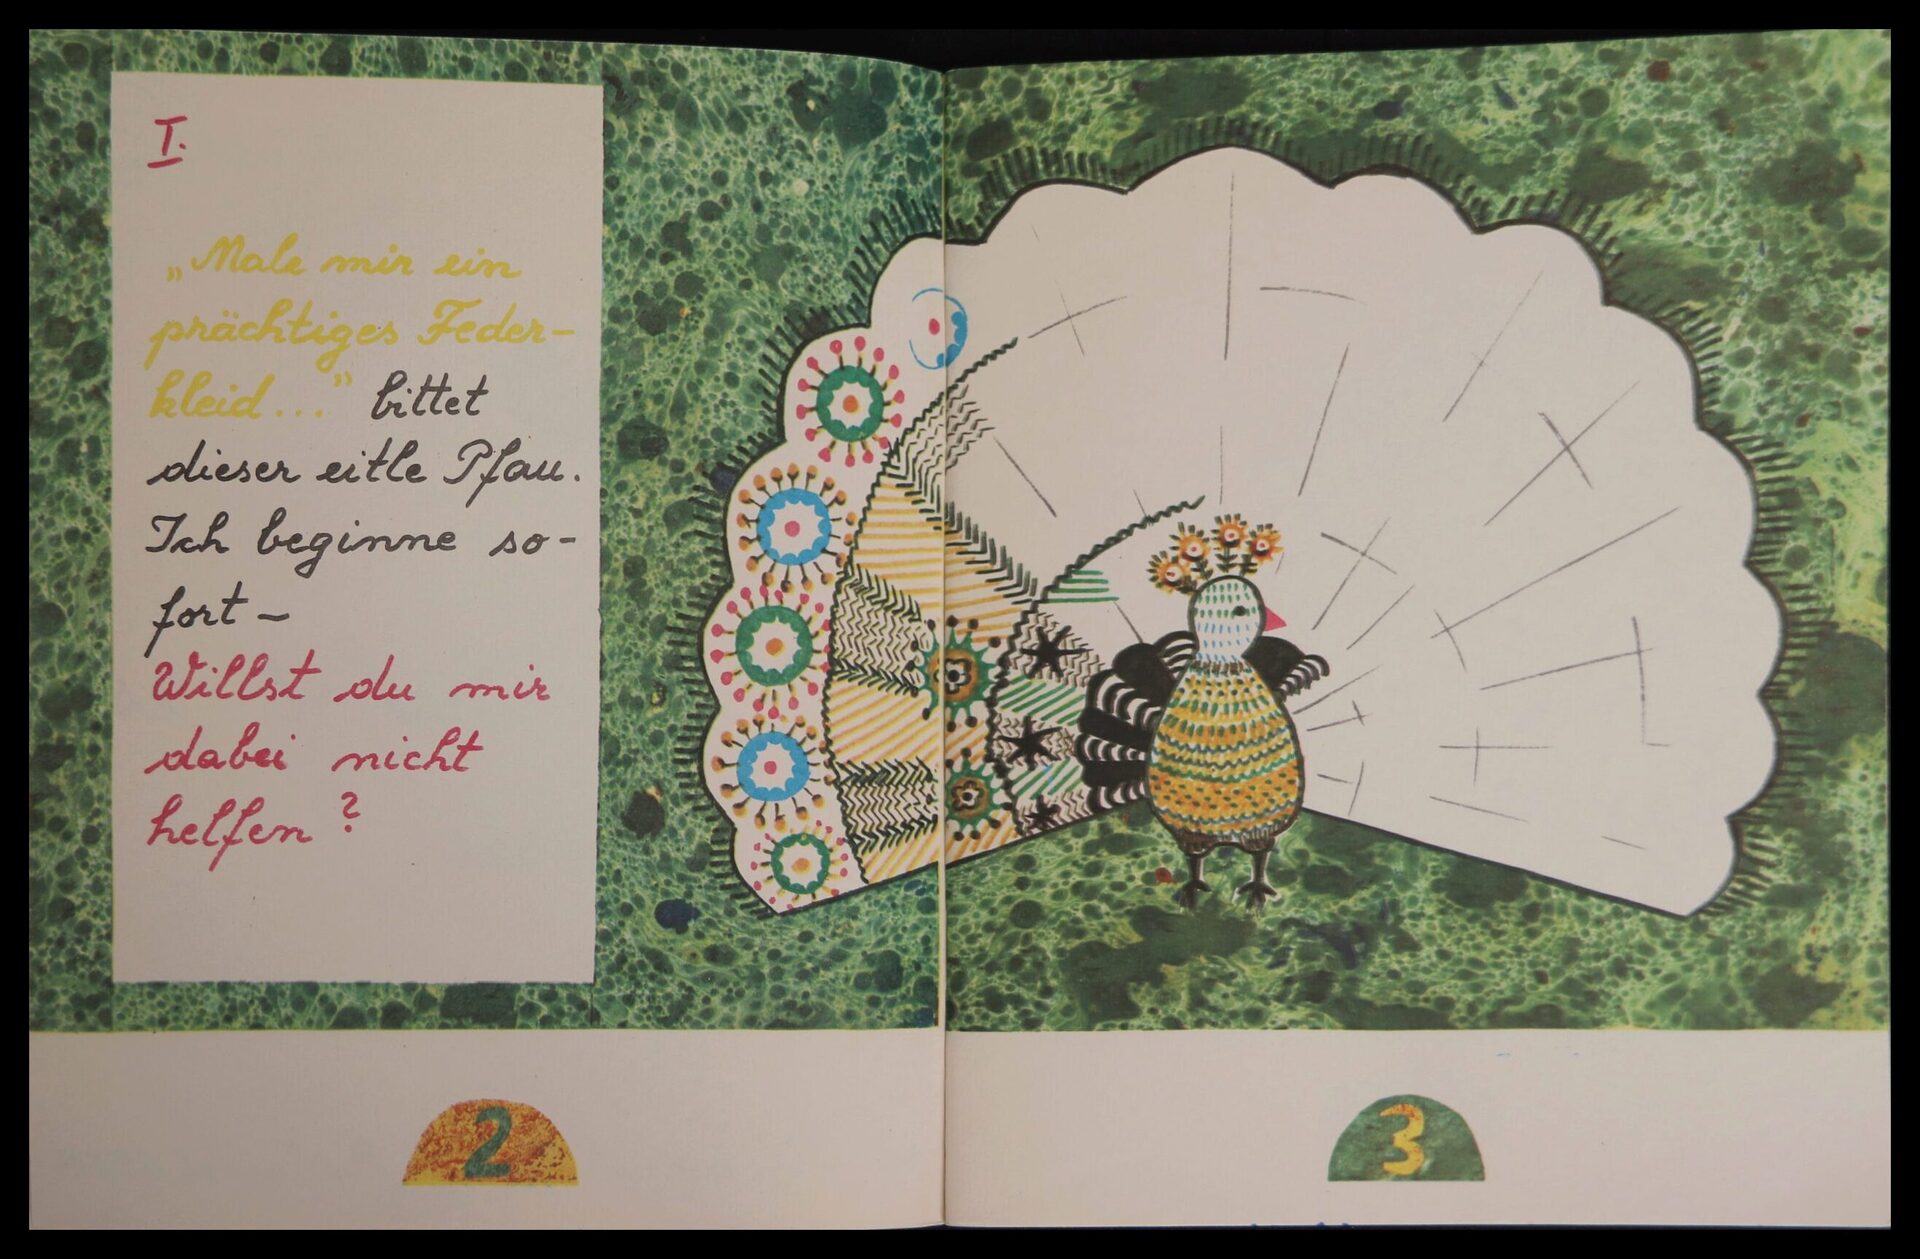 I.
„Male mir ein
prächtiges Feder-
kleid..." bittet
dieser eitle Pfau.
Ich beginne so-
fort–
Willst du mir
dabei nicht
helfen?
2
3